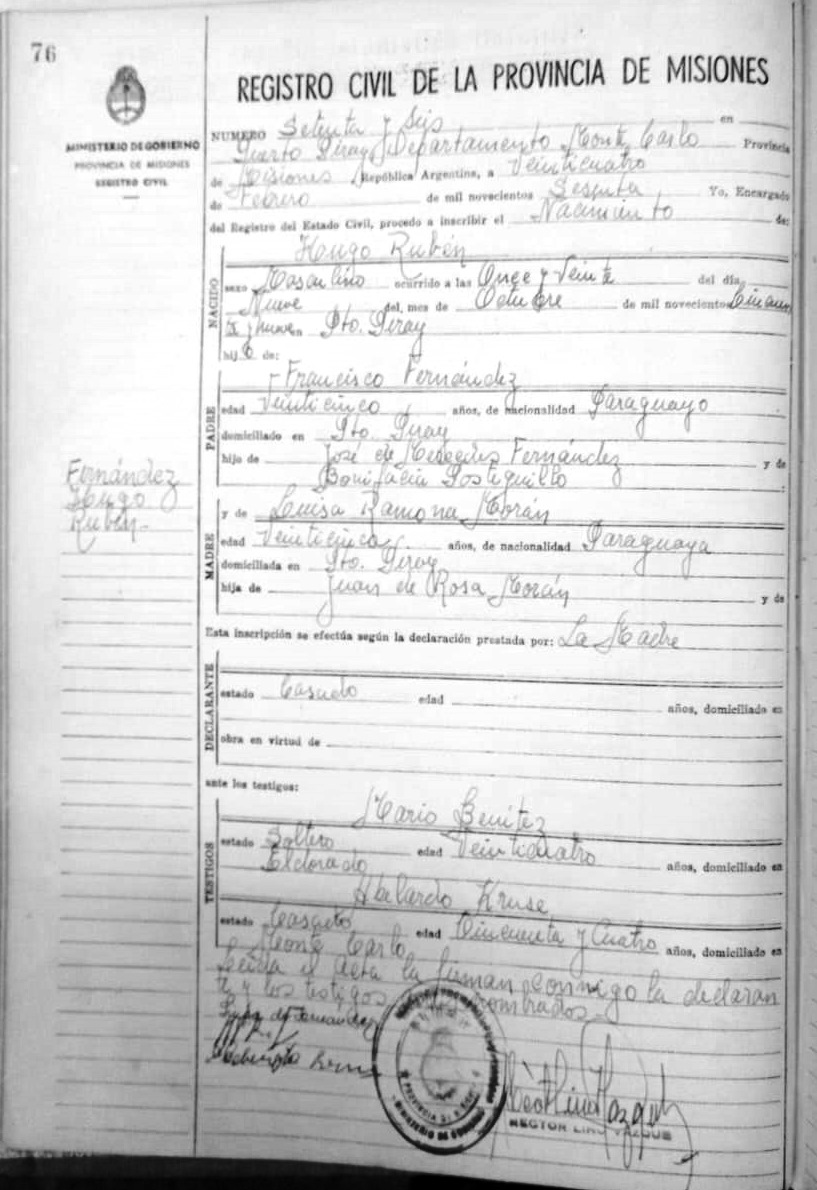 76
MINISTERIO DE GOBIERNO
PROVINCIA DE MISIONES
REGISTRO CIVIL
REGISTRO CIVIL DE LA PROVINCIA DE MISIONES
NUMERO Setenta y Seis en
Puerto Piray, Departamento Monte Carlo Provincia
de Misiones República Argentina, a Veinticuatro
de Febrero de mil novecientos Sesenta Yo, Encargado
del Registro del Estado Civil, procedo a inscribir el Nacimiento de:
NACIDO
Hugo Rubén
sexo Masculino ocurrido a las Once y Veinte del día
Nueve del mes de Octubre de mil novecientos Cincuen
ta y nueve en Pto. Piray
hijo de:
PADRE
Francisco Fernández
edad Veinticinco años, de nacionalidad Paraguayo
domiciliado en Pto. Piray
hijo de José de Fernández y de
Bonifacia
MADRE
y de Luisa Ramona Morán
edad Veinticinco años, de nacionalidad Paraguaya
domiciliada en Pto. Piray
hija de Juan de Rosa Morán y de
Esta inscripción se efectúa según la declaración prestada por: La Madre
DECLARANTE
estado Casado edad años, domiciliado en
obra en virtud de
ante los testigos:
TESTIGOS
Mario Benitez
estado Soltero edad Veinticuatro años, domiciliado en
Eldorado
Abelardo Kruse
estado Casado edad Cincuenta y Cuatro años, domiciliado en
Monte Carlo
Leida el Acta la firman conmigo la declaran
te y los testigos nombrados
Fernández
Hugo
Rubén
HECTOR LINO VAZQUEZ
PROVINCIA DE MISIONES
MINISTERIO DE GOBIERNO